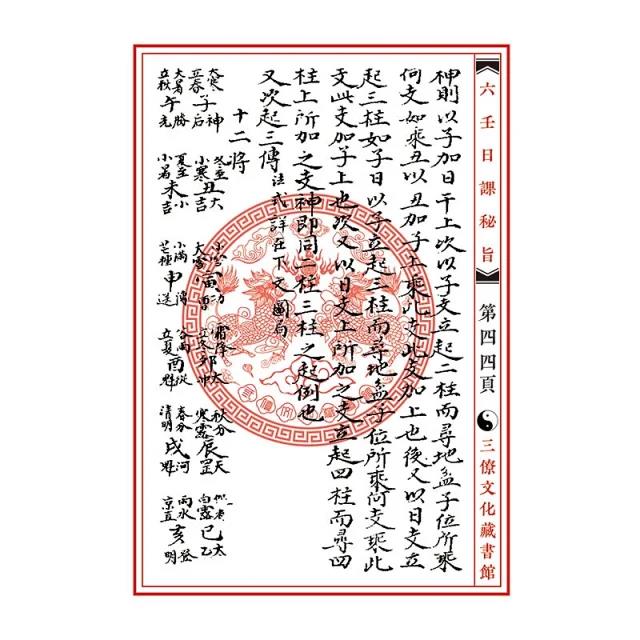 六壬日課秘旨
第四四頁
三僚文化藏書館
神則以子加日干上次以子支立起二柱而尋地盆子位所乘
何支如乘丑以丑加子上乘此支加上也後又以日支立
起三柱如子日以子立起三柱而尋地盆子位所乘何支乘此
支此支加子上也次又以日支上所加之支立起四柱而尋四
柱上所加之支神即同二柱三柱之起例也
又次起三傳 法式詳在下文圖局
十二將
大寒 立春 子 神后
冬至 小寒 丑 大吉
小雪 大雪 寅 功曹
霜降 立冬 卯 太冲
秋分 寒露 辰 天罡
白露 巳 太乙
大暑 立秋 午 勝光
夏至 小暑 未 小吉
小滿 芒種 申 傳送
谷雨 立夏 酉 從魁
春分 清明 戌 河魁
雨水 京直 亥 登明